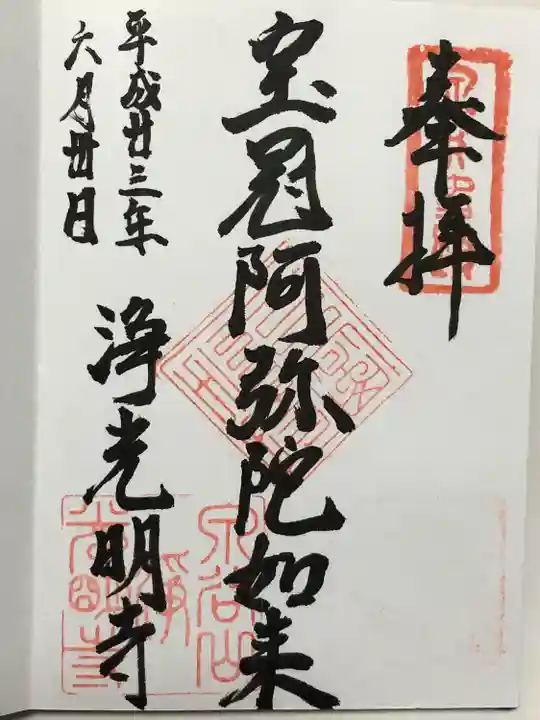 奉拝
宝冠阿弥陀如来
平成廿三年
六月卅日
浄光明寺
泉谷山